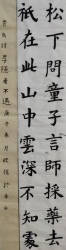 松下問童子言師採藥去
祇在此山中雲深不知處
賈島詩尋隱者不遇